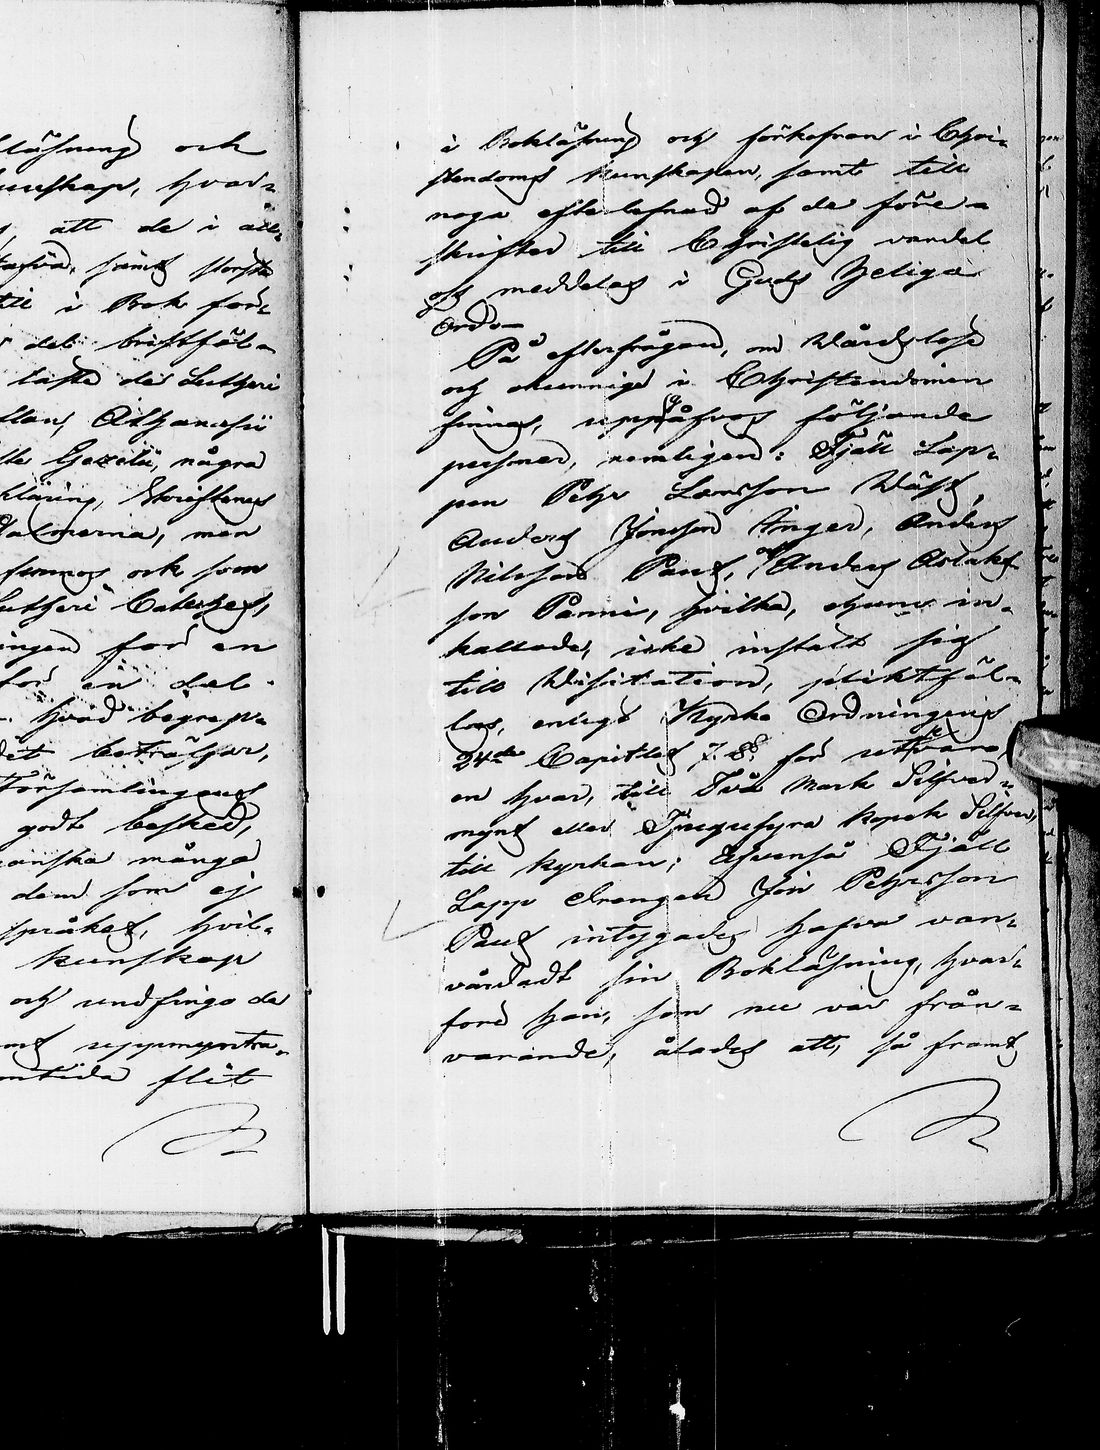 läsning och
kunskap, hvar-
att de i all-
samt största
till i Bok för-
del bristfäl-
läste de Lutheri
Athanasii
Gezelii, några
kläring, Skriftenes
Psalmerna, men
funnos ock som
Lutheri Cateches,
ingen för en
för en del
hvad begrep-
det beträffar,
Församlingens
godt besked,
ganska många
dem som ej
språket, hvil-
kunskap
och undfingo de
uppmuntra-
framtida flit
i Bokläsning och förkofran i Chri-
stendoms kunskapen, samt till
noga efterlefnad af de före-
skrifter till Christelig vandel
och meddelas i Guds Heliga
Ord.
På efterfrågan, om Wårdslöse
och okunnige i Christendomen
finnas, uppgåfvos följande
personer, nemligen: Fjäll Lap-
pen Pehr Larsson Wäst,
Anders Jonsson Inger, Anders
Nilsson Paus, och Anders Aslaks-
son Panni, hvilka, ehuru in-
kallade, icke inställt sig
till Visitation, pliktfäl-
las, enligt Kyrko Ordningens
24de Capitlets 7. §. för uteblifvande,
en hvar, till Två Mark Silfver-
mynt eller Tjugufyra Kopek Silfver,
till kyrkan; Äfvenså Fjäll
Lapp drengen Jon Pehrsson
Paus intygades hafva van-
vårdadt sin Bokläsning, hvar-
före han, som nu var från-
varande, ålades att, så framt